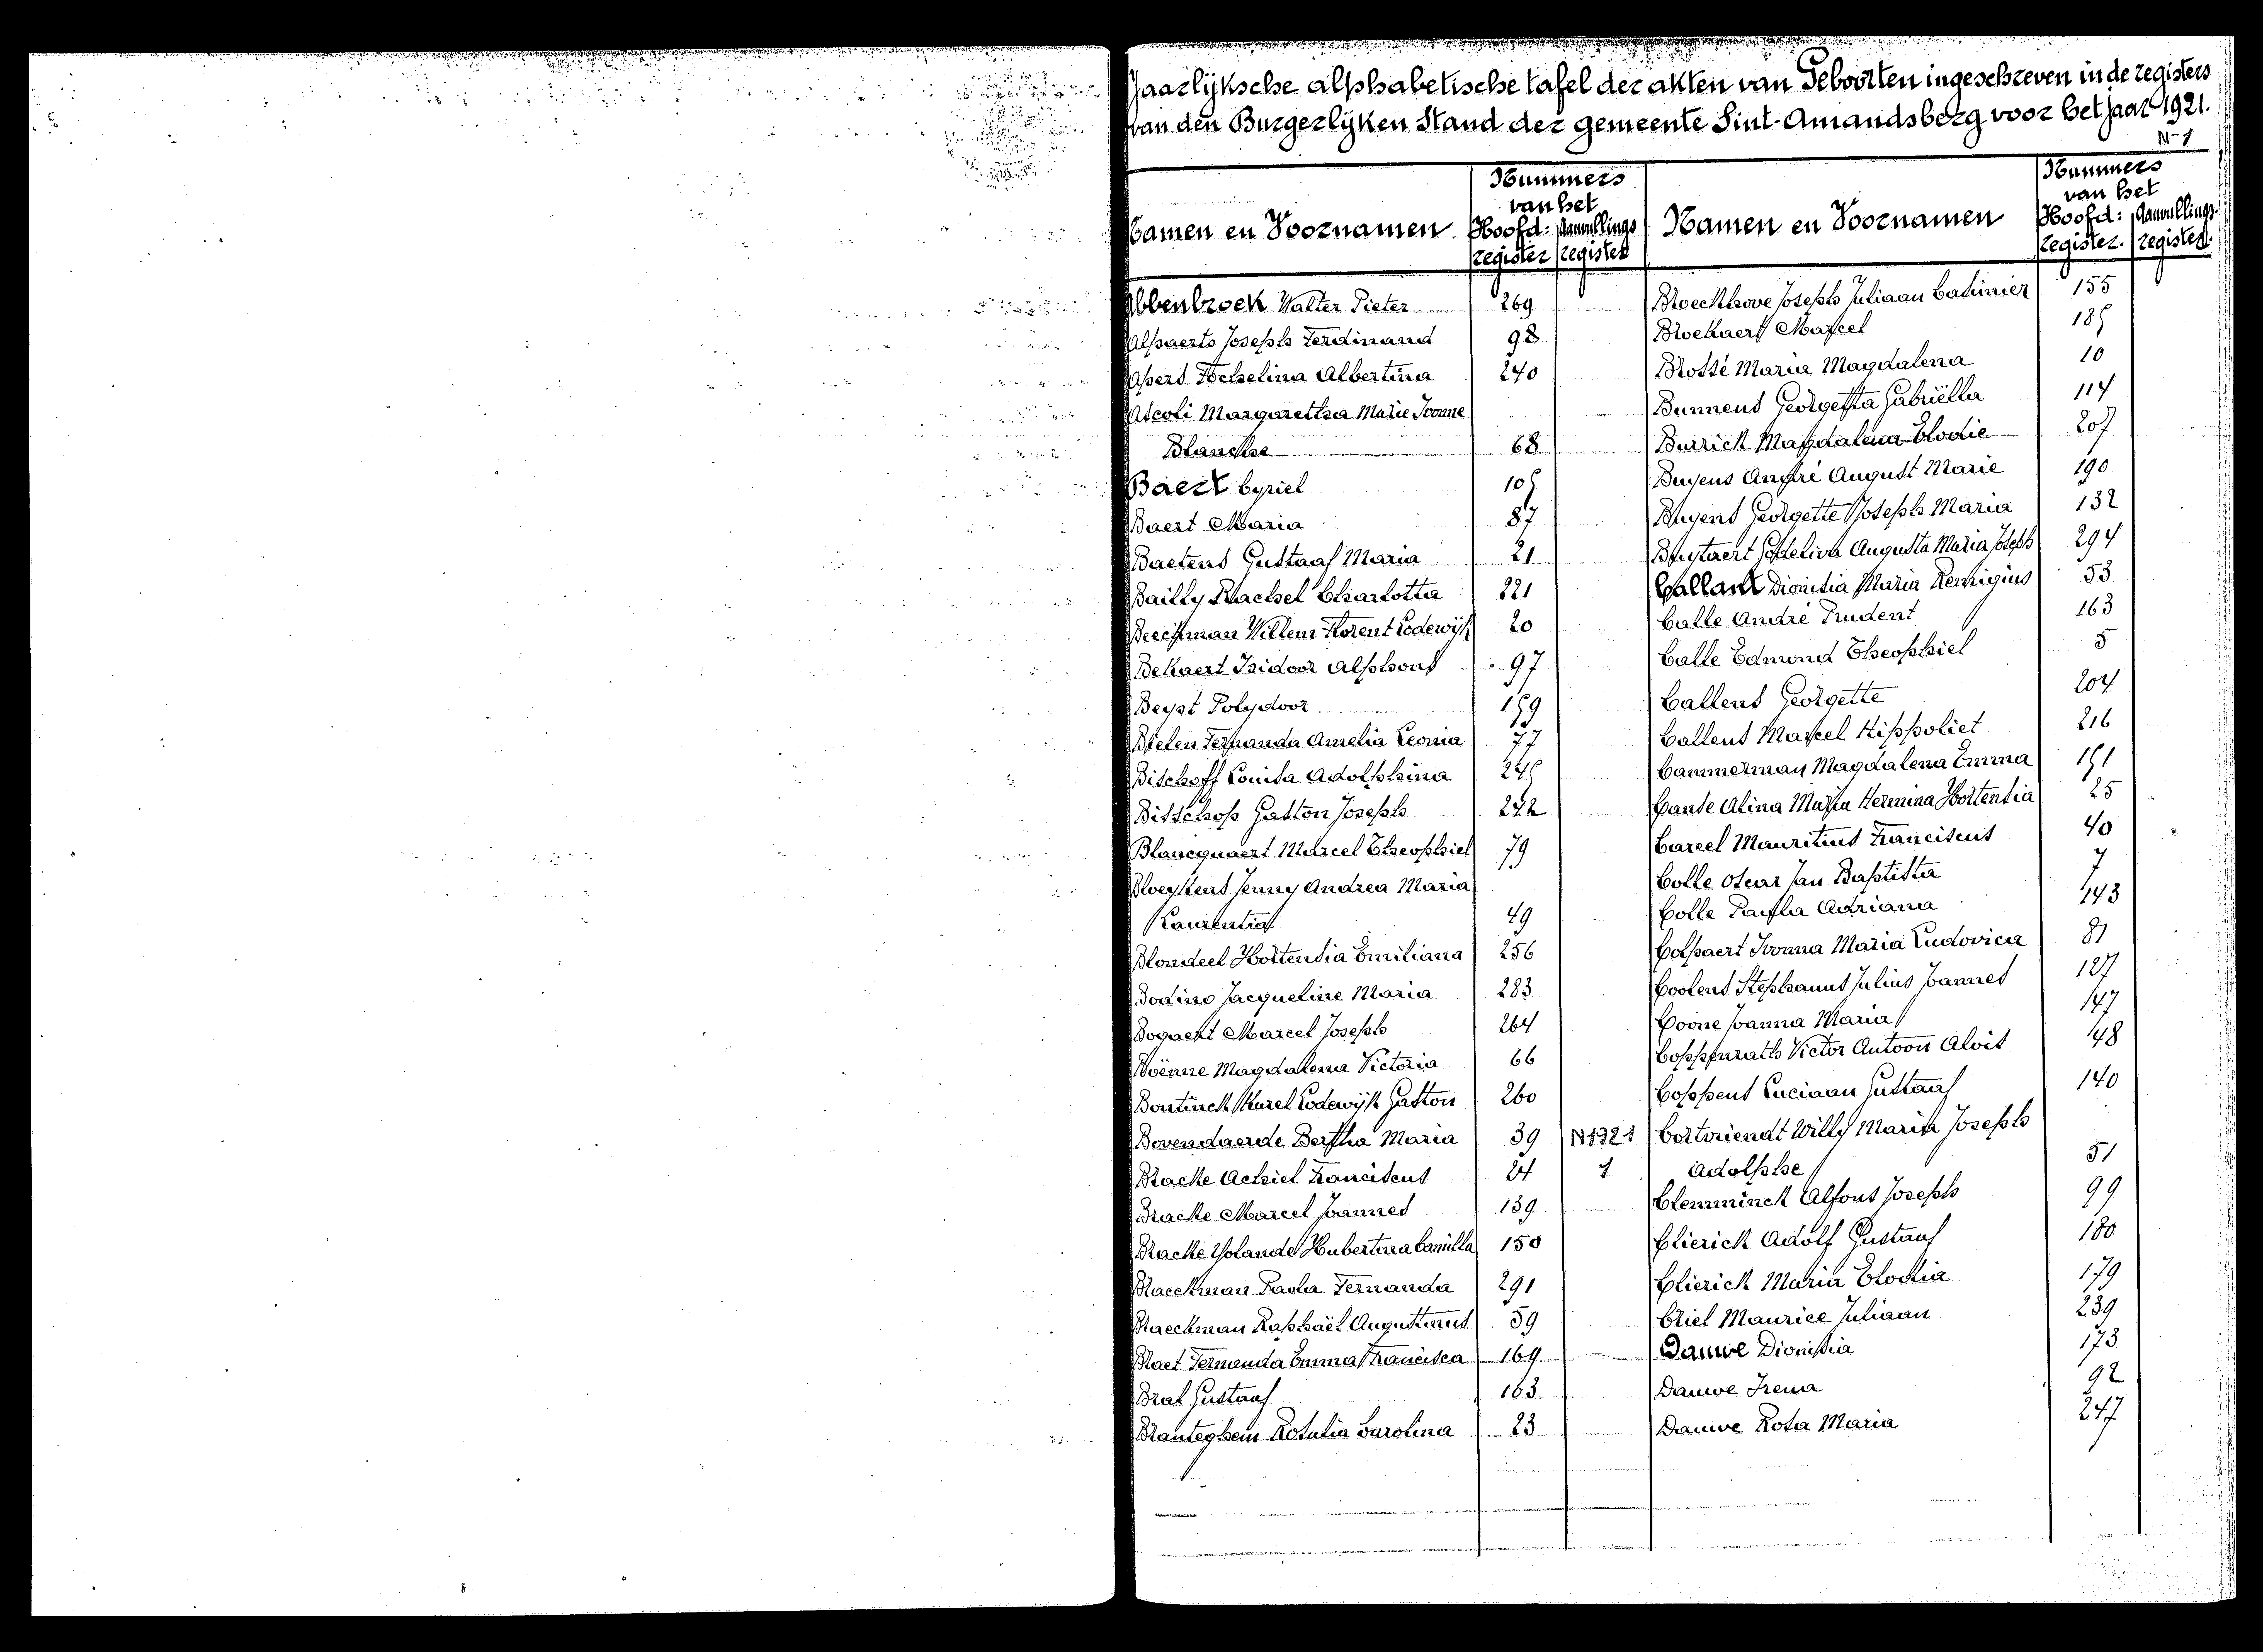 Jaarlyksche alphabetische tafel der akten van Geboorten ingeschreven in de registers
van den Burgerlyken Stand der gemeente Sint-Amandsberg voor het jaar 1921.
N-1
Namen en Voornamen
Nummers
van het
Hoofd: Aanvullings
register register
Namen en Voornamen
Nummers
van het
Hoofd: Aanvullings
register. register.
Abbenbroek Walter Pieter 269
Alpaerts Joseph Ferdinand 98
Apers Jocelina Albertina 240
Ascoli Margaretha Marie Ivonne
Blanche 68
Baert Cyriel 105
Baert Maria 87
Baetens Gustaaf Maria 21
Bailly Rachel Charlotta 221
Beeckman Willem Florent Lodewijk 20
Bekaert Isidoor Alphons 97
Beyst Polydoor 159
Bielen Fernanda Amelia Leonia 77
Bischoff Louisa Adolphina 245
Bisschop Gaston Joseph 272
Blancquaert Marcel Theophiel 79
Bloeykens Jenny Andrea Maria
Laurentia 49
Blondeel Hortensia Emiliana 256
Bodino Jacqueline Maria 283
Bogaert Marcel Joseph 264
Boënne Magdalena Victoria 66
Bontinck Karel Lodewijk Gaston 260
Bovendaerde Bertha Maria 39 N1321
Bracke Achiel Franciscus 24 1
Bracke Marcel Joannes 139
Bracke Yolande Hubertina Camilla 150
Braeckman Paula Fernanda 291
Braeckman Raphaël Augustinus 59
Braet Fernanda Emma Francisca 169
Bral Gustaaf 163
Branteghem Rosalia Carolina 23
Broeckhove Joseph Juliaan Casimier 155
Broekaert Marcel 185
Brossé Maria Magdalena 10
Bunnens Georgetta Gabriëlla 114
Burrick Magdalena Elodie 207
Buyens André August Marie 190
Buyens Georgette Joseph Maria 132
Buytaert Godeliva Augusta Maria Joseph 294
Callant Dionisia Maria Remigius 53
Calle André Prudent 163
Calle Edmond Theophiel 5
Callens Georgette 204
Callens Marcel Hippoliet 216
Cammerman Magdalena Emma 151
Cante Alina Maria Hermina Hortensia 25
Careel Mauritius Franciscus 40
Colle Oscar Jan Baptista 7
Colle Paula Adriana 143
Colpaert Ivonna Maria Ludovica 81
Coolens Stephanus Julius Joannes 127
Coone Joanna Maria 147
Coppenrath Victor Antoon Alois 48
Coppens Luciaan Gustaaf 140
Cortoriendt Willy Maria Joseph
Adolphe 51
Clemminck Alfons Joseph 99
Clierick Adolf Gustaaf 180
Clierick Maria Elodia 179
Criel Maurice Juliaan 239
Dauwe Dionisia 173
Dauwe Irena 92
Dauwe Rosa Maria 247